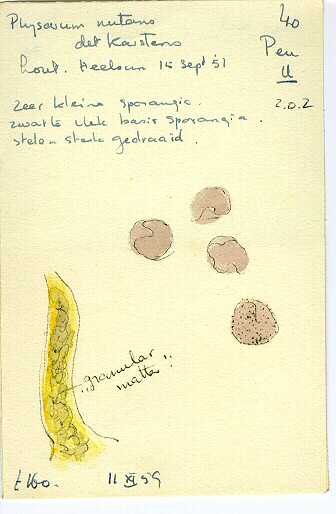 Physarum nutans
det Karstens
hout. Heelsum 15 Sept '51
40
Pen
II
2.0.2
zeer kleine sporangia.
zwarte vlek basis sporangia.
stelen sterk gedraaid.
"granular
matter"!
11 XI 59